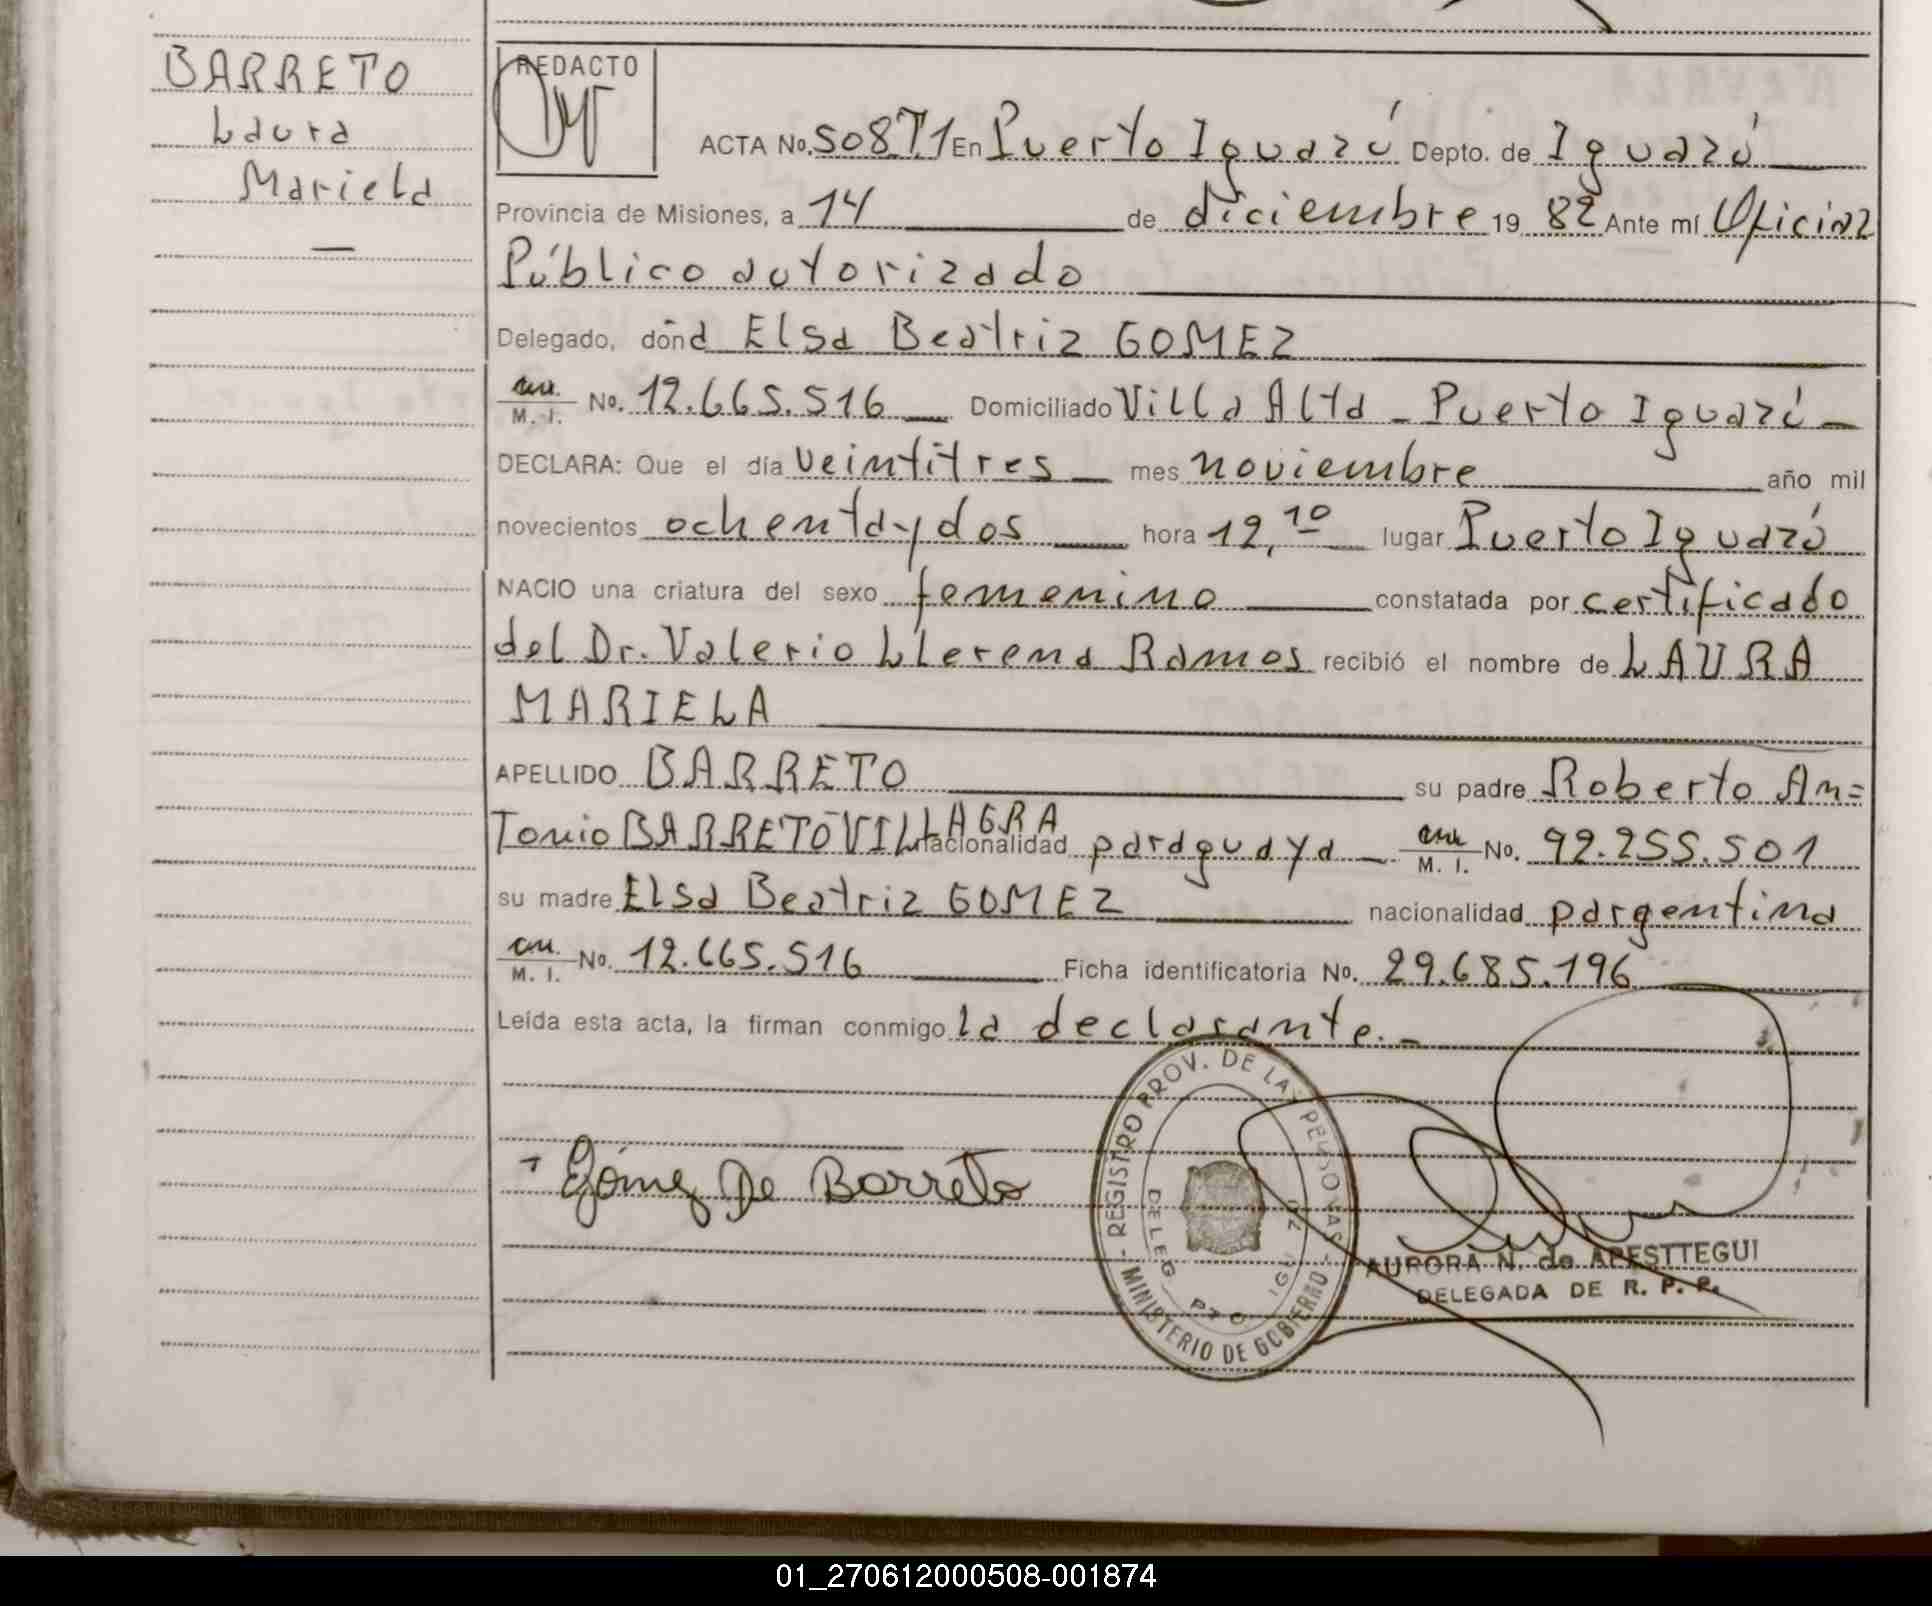 BARRETO
Laura
Mariela
—
REDACTO
ACTA No. 508.T.1 En Puerto Iguazú Depto. de Iguazú
Provincia de Misiones, a 14 de diciembre 19 82 Ante mí Oficial
Público autorizado
Delegado, doña Elsa Beatriz GOMEZ
M. I. No. 12.665.516 Domiciliado Villa Alta - Puerto Iguazú -
DECLARA: Que el día veintitres mes noviembre año mil
novecientos ochenta y dos hora 12,10 lugar Puerto Iguazú
NACIO una criatura del sexo femenino constatada por certificado
del Dr. Valerio Llerena Ramos recibió el nombre de LAURA
MARIELA
APELLIDO BARRETO su padre Roberto An=
Tonio BARRETO VILLAGRA nacionalidad paraguaya M. I. No. 92.255.501
su madre Elsa Beatriz GOMEZ nacionalidad pargentina
M. I. No. 12.665.516 Ficha identificatoria No. 29.685.196
Leída esta acta, la firman conmigo la declarante.-
Gómez De Barreto
- REGISTRO PROV. DE LAS PERSONAS - MINISTERIO DE GOBIERNO
DELEG. PTO. IGUAZU
AURORA N. de APESTTEGUI
DELEGADA DE R. P. P.
01_270612000508-001874